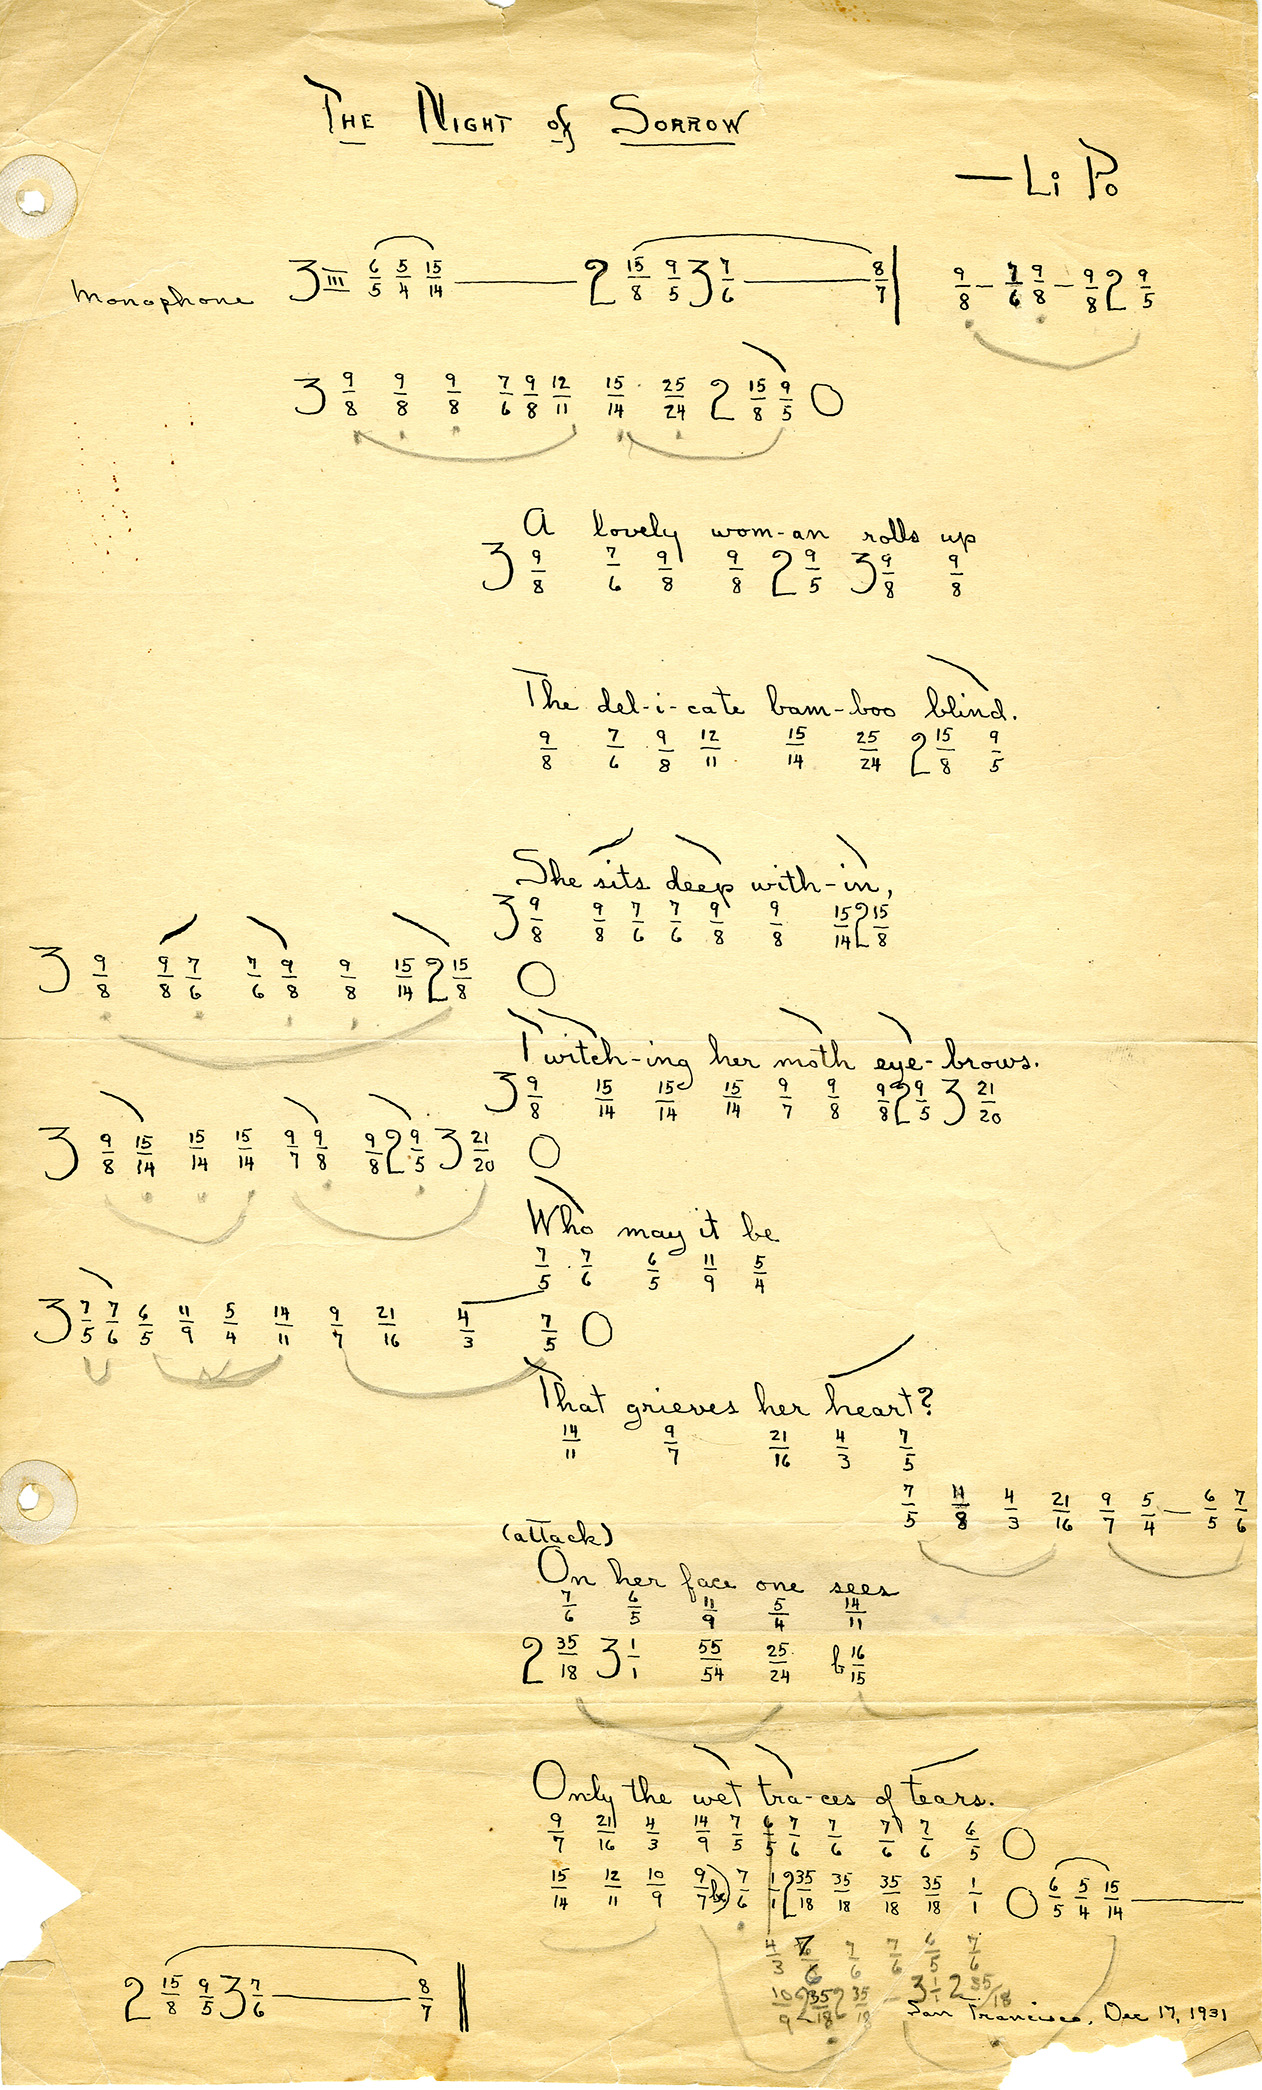 THE NIGHT of SORROW
— Li Po
Monophone 3 III 6/5 5/4 15/14 — 2 15/8 9/5 3 7/6 — 8/7 | 9/8 — 7/6 9/8 — 9/8 2 9/5
3 9/8 9/8 9/8 7/6 9/8 12/11 15/14 25/24 2 15/8 9/5 O
A lovely wom-an rolls up
3 9/8 7/6 9/8 9/8 2 9/5 3 9/8 9/8
The del-i-cate bam-boo blind.
9/8 7/6 9/8 12/11 15/14 25/24 2 15/8 9/5
She sits deep with-in,
3 9/8 9/8 7/6 7/6 9/8 9/8 15/14 2 15/8
3 9/8 9/8 7/6 7/6 9/8 9/8 15/14 2 15/8 O
Twitch-ing her moth eye-brows.
3 9/8 15/14 15/14 15/14 9/7 9/8 9/8 2 9/5 3 21/20
3 9/8 15/14 15/14 15/14 9/7 9/8 9/8 2 9/5 3 21/20 O
Who may it be
7/5 7/6 6/5 11/9 5/4
3 7/5 7/6 6/5 11/9 5/4 14/11 9/7 21/16 4/3 7/5 O
That grieves her heart?
14/11 9/7 21/16 4/3 7/5
7/5 11/8 4/3 21/16 9/7 5/4 — 6/5 7/6
(attack)
On her face one sees
7/6 6/5 11/9 5/4 14/11
2 35/18 3 1/1 55/54 25/24 b 16/15
Only the wet tra-ces of tears.
9/7 21/16 4/3 14/9 7/5 6/5 7/6 7/6 7/6 7/6 6/5 O
15/14 12/11 10/9 9/7 7/6 1/1 2 35/18 35/18 35/18 35/18 1/1 O 6/5 5/4 15/14 —
4/3 7/6 7/6 7/6 6/5 7/6
10/9 2 35/18 2 35/18 — 3 1/1 2 35/18
2 15/8 9/5 3 7/6 — 8/7
San Francisco, Dec 17, 1931